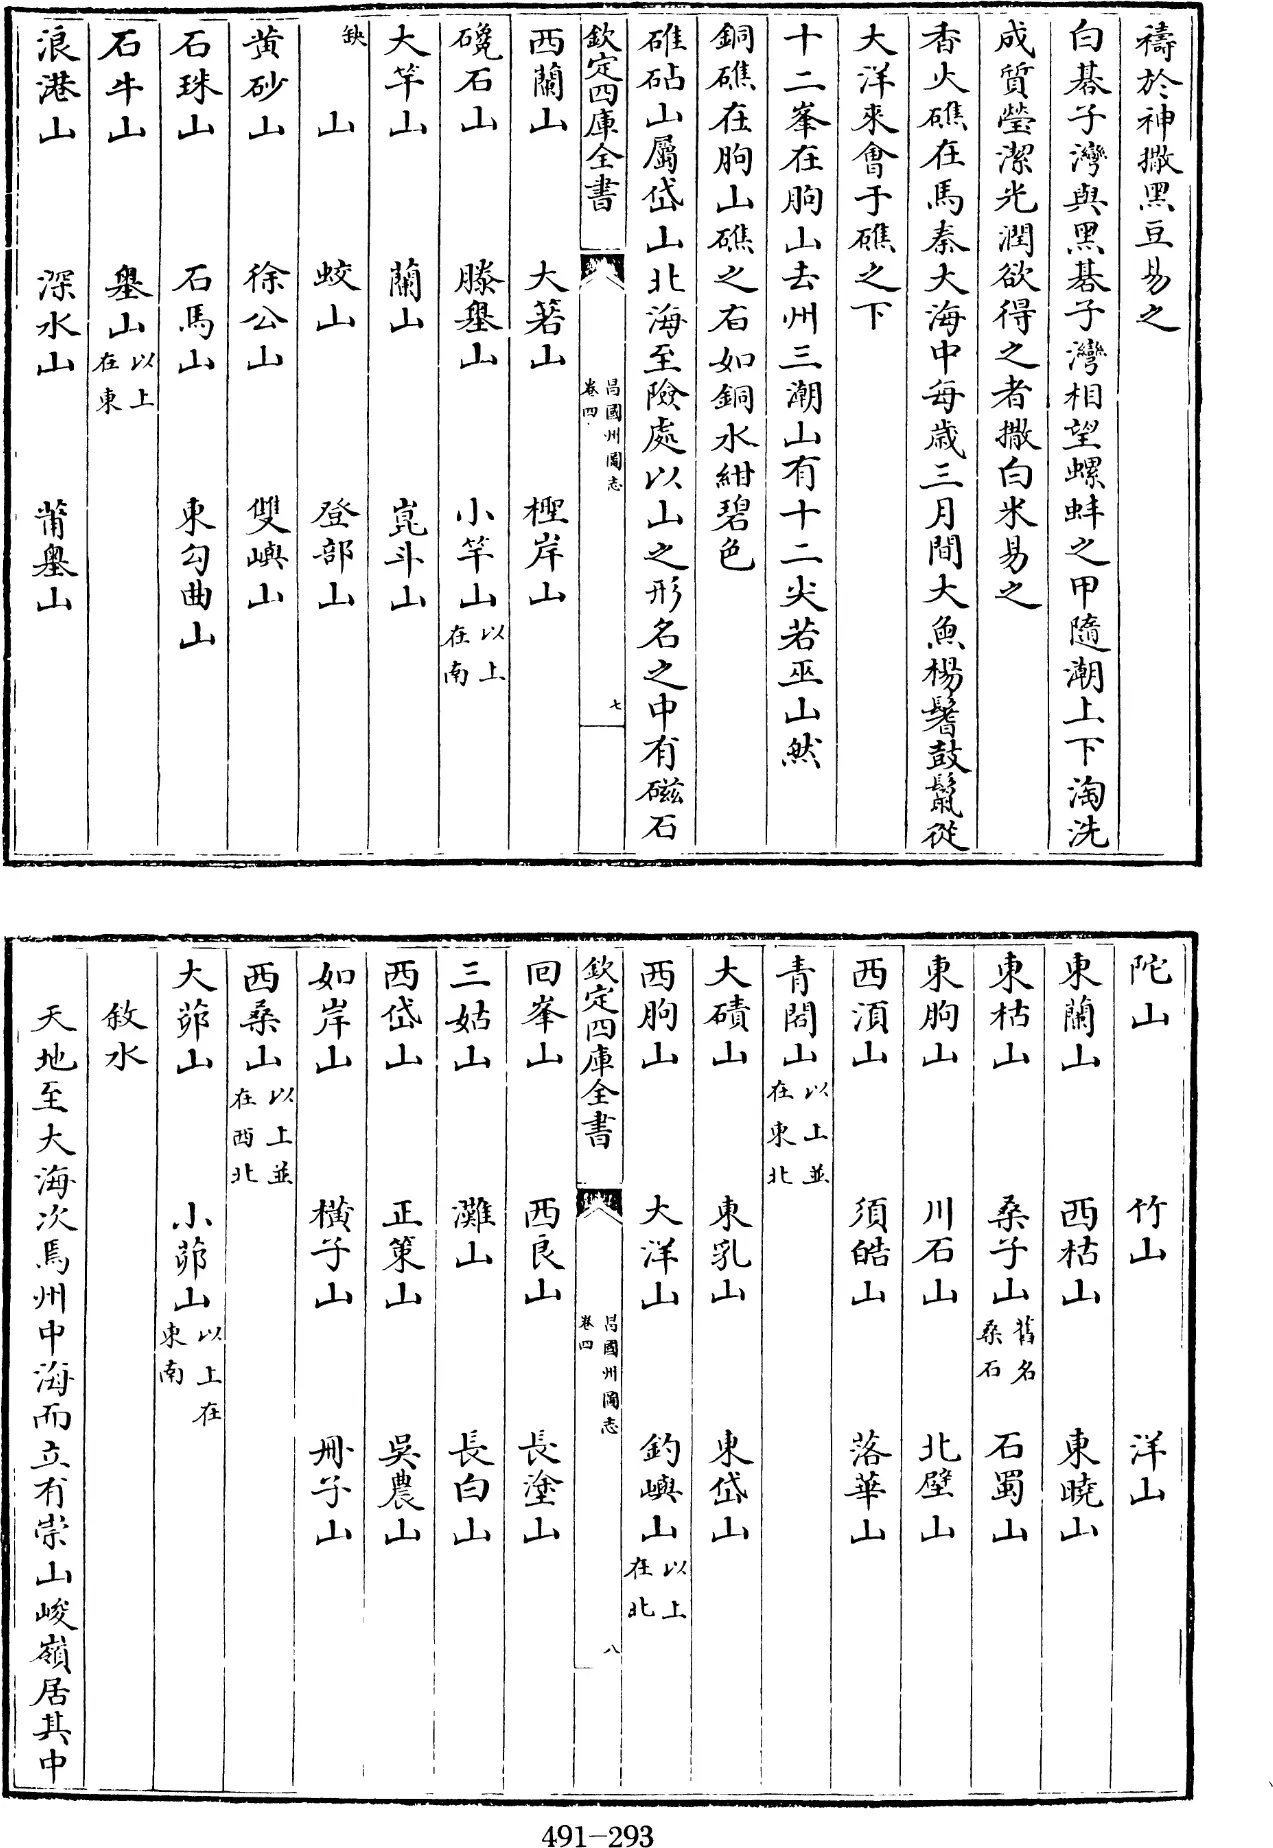 禱於神撒黑豆易之
白碁子灣與黑碁子灣相望螺蚌之甲隨潮上下淘洗
成質瑩潔光潤欲得之者撒白米易之
香火礁在馬秦大海中每歲三月間大魚楊鬐鼓鬣從
大洋來會于礁之下
十二峯在朐山去州三潮山有十二尖若巫山然
銅礁在朐山礁之右如銅水紺碧色
碓砧山屬岱山北海至險處以山之形名之中有磁石
欽定四庫全書 昌國州圖志 卷四 七
西蘭山 大茖山 檉岸山
石山 滕壆山 小竿山 以上在南
大竿山 蘭山 崑斗山
缺山 蛟山 登部山
黄砂山 徐公山 雙嶼山
石珠山 石馬山 東勾曲山
石牛山 壆山 以上在東
浪港山 深水山 莆壆山
陀山 竹山 洋山
東蘭山 西枯山 東曉山
東枯山 桑子山 舊名桑石 石蜀山
東朐山 川石山 北壁山
西湏山 須皓山 落華山
青閟山 以上並在東北
大磧山 東乳山 東岱山
西朐山 大洋山 釣嶼山 以上在北
欽定四庫全書 昌國州圖志 卷四 八
回峯山 西良山 長塗山
三姑山 灘山 長白山
西岱山 正策山 吳農山
如岸山 横子山 冊子山
西桑山 以上並在西北
大茆山 小茆山 以上在東南
敘水
天地至大海次焉州中海而立有崇山峻嶺居其中
491-293